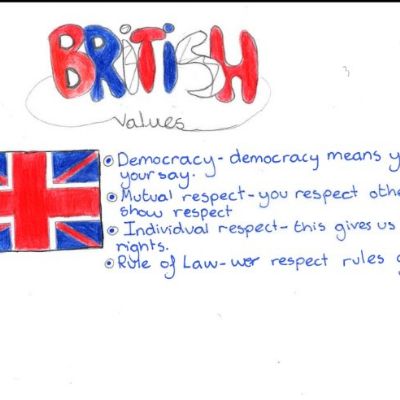 BRITISH
Values
Democracy - democracy means y
your say.
Mutual respect - you respect othe
show respect
Individual respect - this gives us
rights.
Rule of Law - respect rules